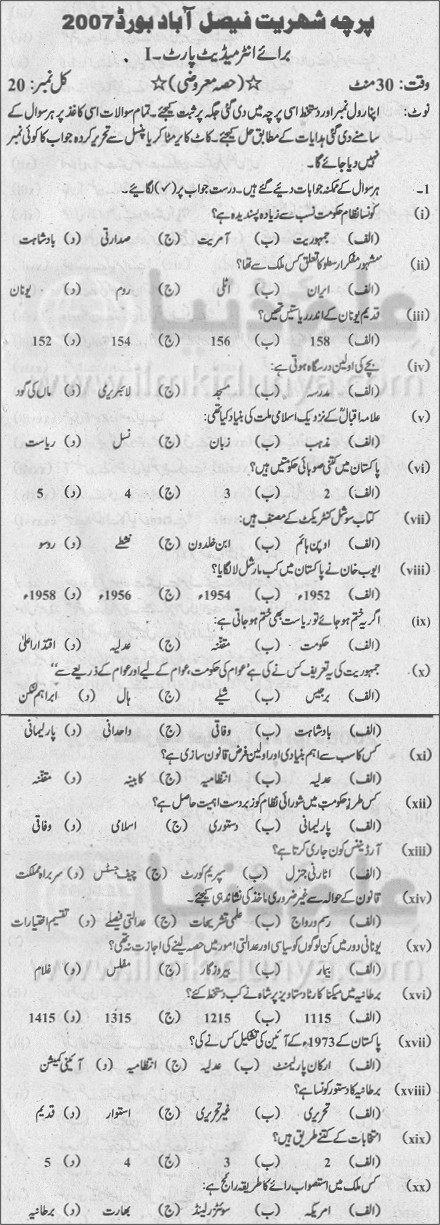 پرچہ شہریت فیصل آباد بورڈ 2007
برائے انٹرمیڈیٹ پارٹ۔ I
وقت: 30 منٹ ☆(حصہ معروضی)☆ کل نمبر: 20
نوٹ: اپنا رول نمبر اور دستخط اسی پرچہ میں دی گئی جگہ پر ثبت کیجئے۔ تمام سوالات اسی کاغذ پر ہر سوال کے
سامنے دی گئی ہدایات کے مطابق حل کیجئے۔ کاٹ کر یا مٹا کر یا پنسل سے تحریر کردہ جواب کا کوئی نمبر
نہیں دیا جائے گا۔
1۔ ہر سوال کے ممکنہ جوابات دیئے گئے ہیں۔ درست جواب پر (✓) لگائیے۔
(i) کونسا نظام حکومت سب سے زیادہ پسندیدہ ہے؟
(الف) جمہوریت (ب) آمریت (ج) صدارتی (د) بادشاہت
(ii) مشہور مفکر ارسطو کا تعلق کس ملک سے تھا؟
(الف) ایران (ب) اٹلی (ج) روم (د) یونان
(iii) قدیم یونان کے اندر ریاستیں تھیں؟
(الف) 158 (ب) 156 (ج) 154 (د) 152
(iv) بچے کی اولین درسگاہ ہوتی ہے:
(الف) مدرسہ (ب) مسجد (ج) لائبریری (د) ماں کی گود
(v) علامہ اقبالؒ کے نزدیک اسلامی ملت کی بنیاد کیا تھی:
(الف) مذہب (ب) زبان (ج) نسل (د) ریاست
(vi) پاکستان میں کتنی صوبائی حکومتیں ہیں؟
(الف) 2 (ب) 3 (ج) 4 (د) 5
(vii) کتاب سوشل کنٹریکٹ کے مصنف ہیں:
(الف) اوپن ہائم (ب) ابن خلدون (ج) نطشے (د) روسو
(viii) ایوب خان نے پاکستان میں کب مارشل لا لگایا؟
(الف) 1952ء (ب) 1954ء (ج) 1956ء (د) 1958ء
(ix) اگر یہ ختم ہو جائے تو ریاست بھی ختم ہو جاتی ہے:
(الف) حکومت (ب) مقننہ (ج) عدلیہ (د) اقتدار اعلیٰ
(x) جمہوریت کی یہ تعریف کس نے کی ہے ”عوام کی حکومت، عوام کے لیے اور عوام کے ذریعے سے“
(الف) برجیس (ب) شیلے (ج) ہال (د) ابراہم لنکن
(الف) بادشاہت (ب) وفاقی (ج) واحدانی (د) پارلیمانی
(xi) کس کا سب سے اہم بنیادی اور اولین فرض قانون سازی ہے؟
(الف) عدلیہ (ب) انتظامیہ (ج) کابینہ (د) مقننہ
(xii) کس طرز حکومت میں شورائی نظام کو زبردست اہمیت حاصل ہے؟
(الف) پارلیمانی (ب) دستوری (ج) اسلامی (د) وفاقی
(xiii) آرڈیننس کون جاری کرتا ہے؟
(الف) اٹارنی جنرل (ب) سپریم کورٹ (ج) چیف جسٹس (د) سربراہ مملکت
(xiv) قانون کے حوالہ سے غیر ضروری ماخذ کی نشاندہی کیجئے۔
(الف) رسم و رواج (ب) علمی تشریحات (ج) عدالتی فیصلے (د) تقسیم اختیارات
(xv) یونانی دور میں کن لوگوں کو سیاسی اور عدالتی امور میں حصہ لینے کی اجازت نہ تھی؟
(الف) بیمار (ب) بیروزگار (ج) مفلس (د) غلام
(xvi) برطانیہ میں میگنا کارٹا دستاویز پر شاہ نے کب دستخط کئے؟
(الف) 1115 (ب) 1215 (ج) 1315 (د) 1415
(xvii) پاکستان کے 1973ء کے آئین کی تشکیل کس نے کی؟
(الف) ارکان پارلیمنٹ (ب) عدلیہ (ج) انتظامیہ (د) آئینی کمیشن
(xviii) برطانیہ کا دستور کونسا ہے؟
(الف) تحریری (ب) غیر تحریری (ج) استوار (د) قدیم
(xix) انتخابات کے کتنے طریق ہیں؟
(الف) 2 (ب) 3 (ج) 4 (د) 5
(xx) کس ملک میں استصواب رائے کا طریقہ رائج ہے:
(الف) امریکہ (ب) سوئٹزرلینڈ (ج) بھارت (د) برطانیہ